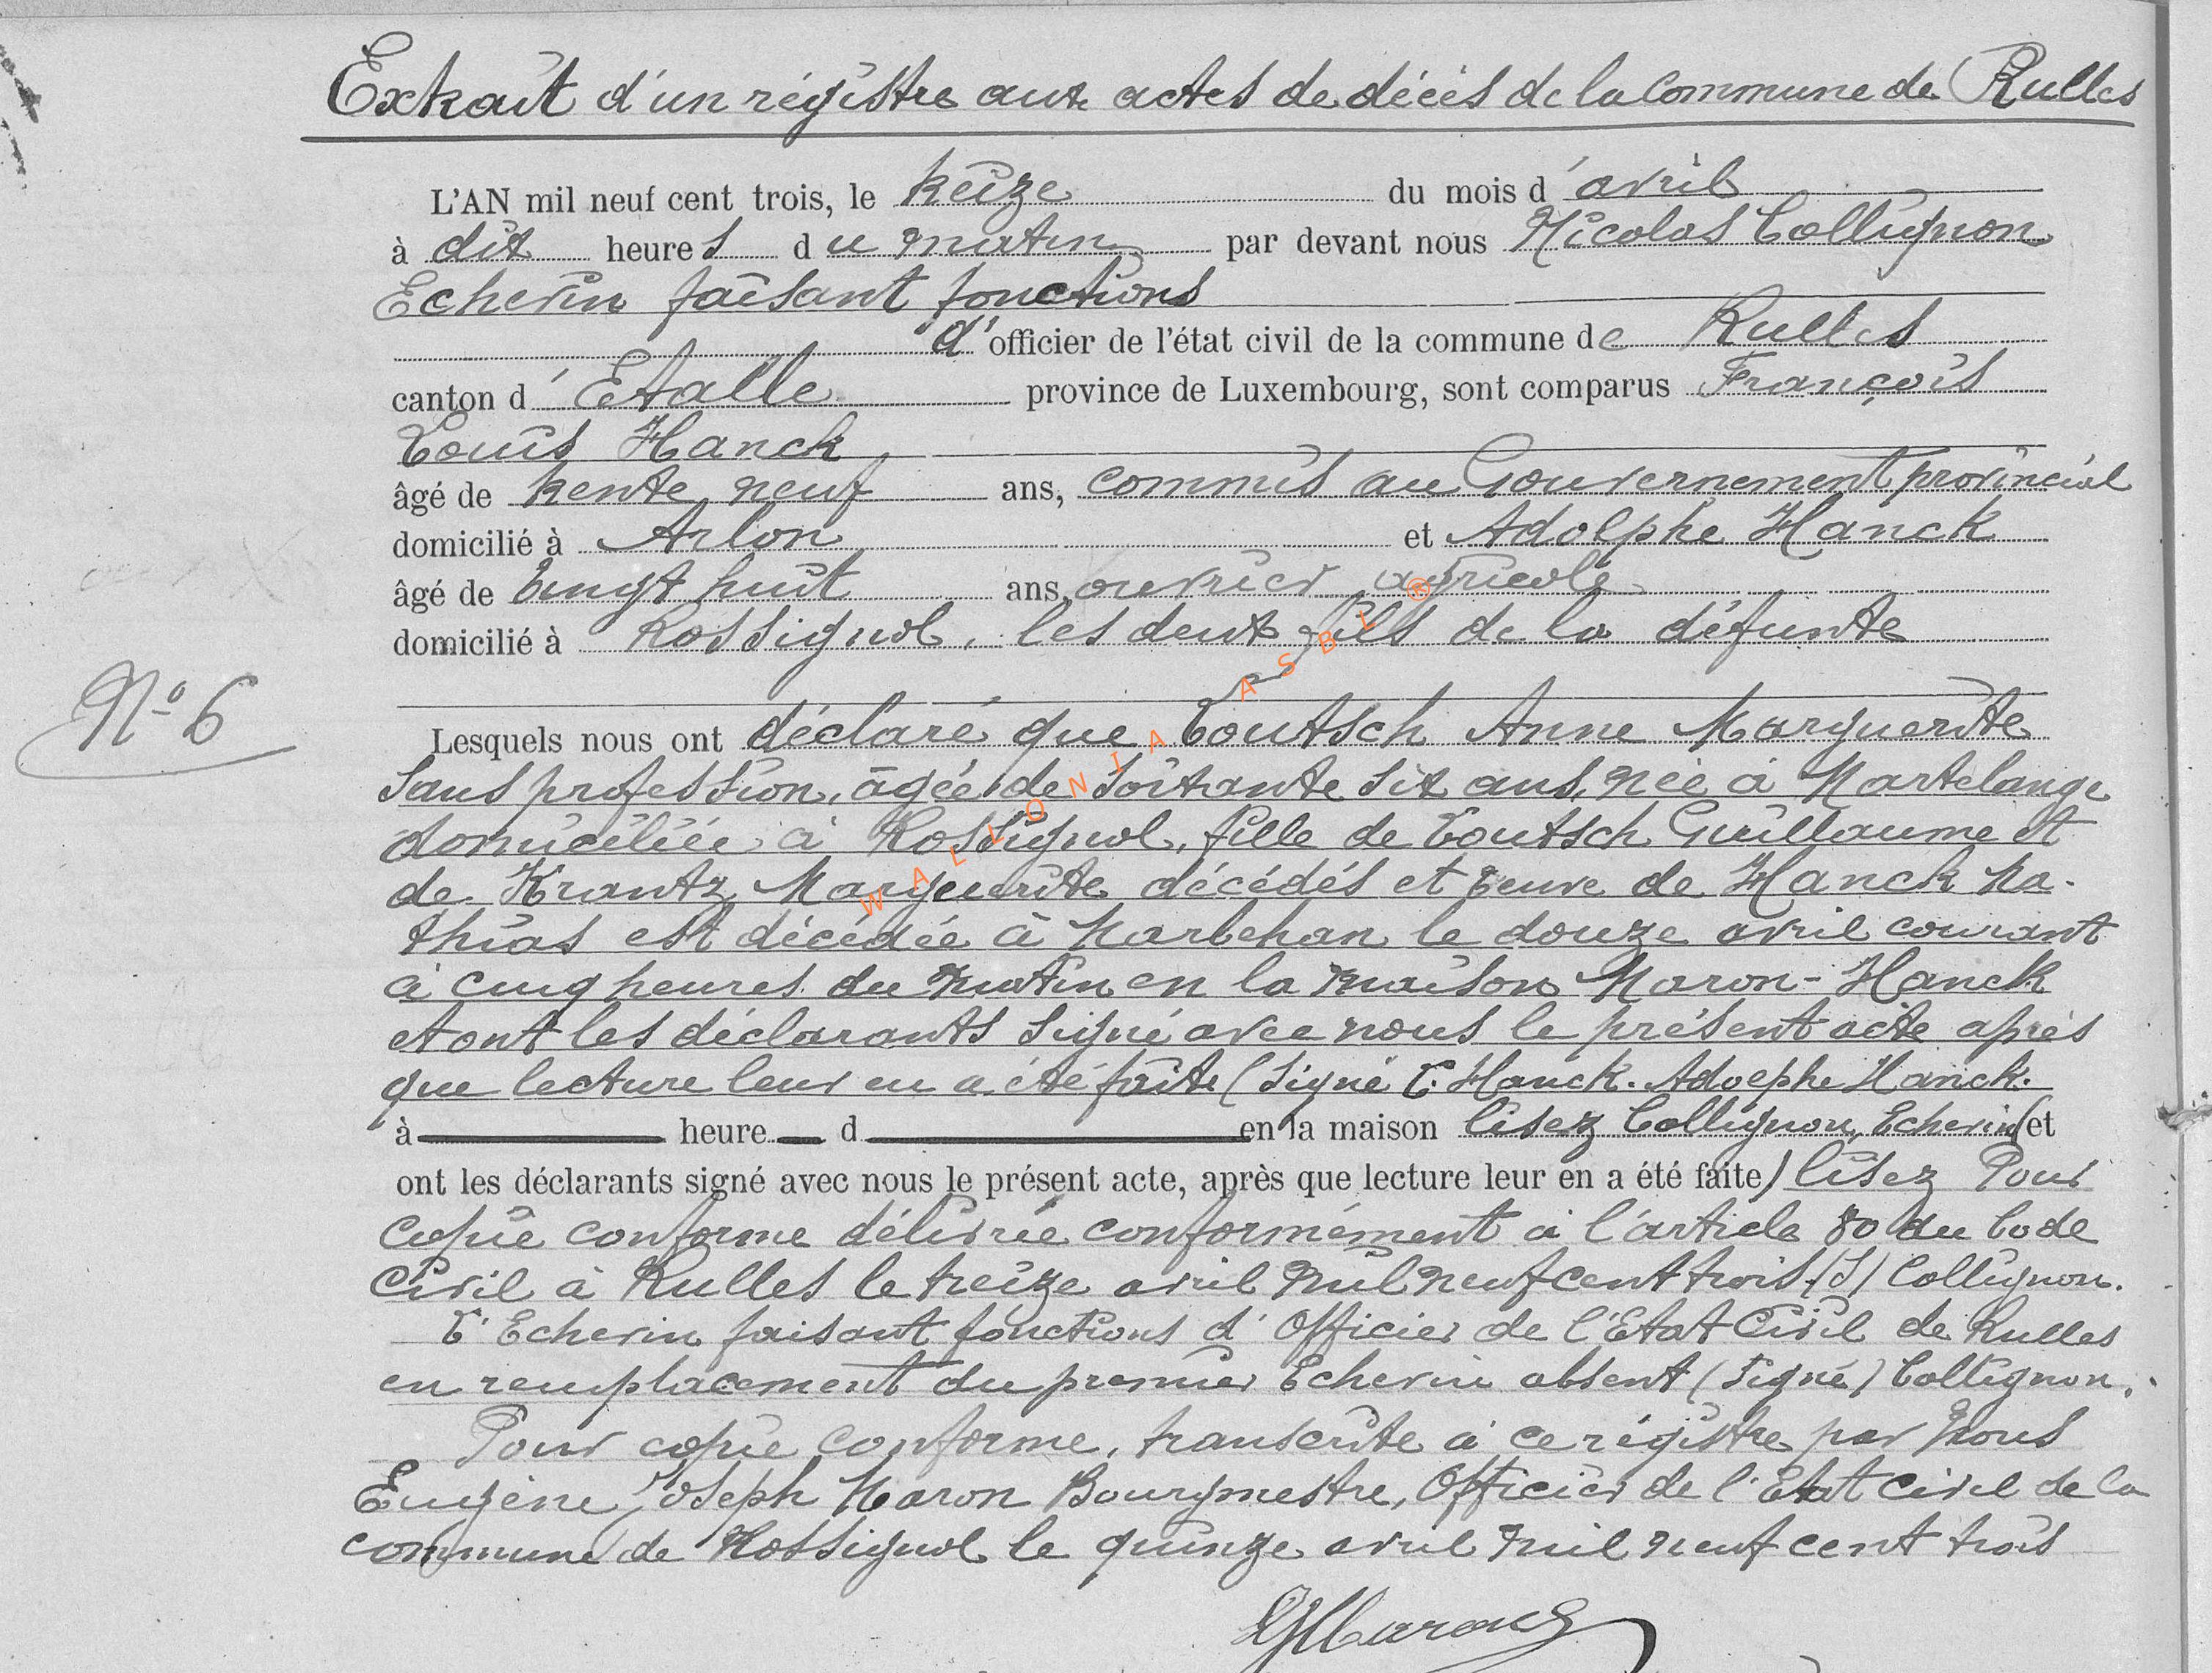 Extrait d'un régistre aux actes de décès de la Commune de Rulles
L'AN mil neuf cent trois, le treize du mois d'avril
à dix heures du matin par devant nous Nicolas Collignon
Echevin faisant fonctions
d'officier de l'état civil de la commune de Rulles
canton d'Etalle province de Luxembourg, sont comparus François
Louis Hanck
âgé de trente neuf ans, commis au Gouvernement provincial
domicilié à Arlon et Adolphe Hanck
âgé de vingt huit ans, ouvrier agricole
domicilié à Rossignol, les deux fils de la défunte
N° 6
Lesquels nous ont déclaré que Loutsch Anne Marguerite
sans profession, âgée de soixante six ans, née à Martelange
domiciliée à Rossignol, fille de Loutsch Guillaume et
de Krantz Marguerite décédés et veuve de Hanck Ma-
thias est décédée à Marbehan le douze avril courant
à cinq heures du matin en la maison Maron-Hanck
et ont les déclarants signé avec nous le présent acte après
que lecture leur en a été faite (Signé L. Hanck. Adolphe Hanck.
à heure d en la maison lisez Collignon, Echevin (et
ont les déclarants signé avec nous le présent acte, après que lecture leur en a été faite) lisez Pour
copie conforme délivrée conformément à l'article 80 du Code
Civil à Rulles le treize avril mil neuf cent trois. (S) Collignon.
L'Echevin faisant fonctions d'Officier de l'Etat Civil de Rulles
en remplacement du premier Echevin absent (Signé) Collignon.
Pour copie conforme, transcrite à ce régistre par Nous
Eugène Joseph Maron Bourgmestre, Officier de l'Etat Civil de la
commune de Rossignol le quinze avril mil neuf cent trois
EJMaron
WALLONIA ASBL ®